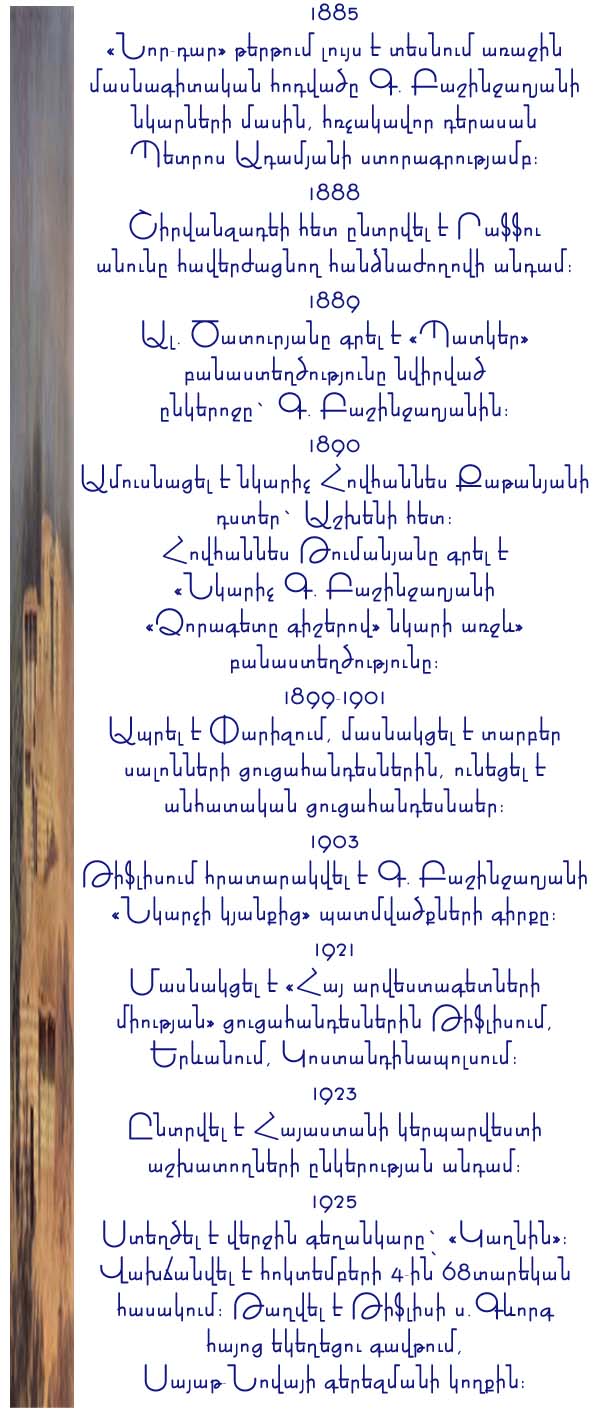 1885
«Նոր-դար» թերթում լույս է տեսնում առաջին
մասնագիտական հոդվածը Գ. Բաշինջաղյանի
նկարների մասին, հռչակավոր դերասան
Պետրոս Ադամյանի ստորագրությամբ:
1888
Շիրվանզադեի հետ ընտրվել է Րաֆֆու
անունը հավերժացնող հանձնաժողովի անդամ:
1889
Ալ. Ծատուրյանը գրել է «Պատկեր»
բանաստեղծությունը նվիրված
ընկերոջը՝ Գ. Բաշինջաղյանին:
1890
Ամուսնացել է նկարիչ Հովհաննես Քաթանյանի
դստեր՝ Աշխենի հետ:
Հովհաննես Թումանյանը գրել է
«Նկարիչ Գ. Բաշինջաղյանի
«Ձորագետը գիշերով» նկարի առջև»
բանաստեղծությունը:
1899-1901
Ապրել է Փարիզում, մասնակցել է տարբեր
սալոնների ցուցահանդեսներին, ունեցել է
անհատական ցուցահանդեսնաեր:
1903
Թիֆլիսում հրատարակվել է Գ. Բաշինջաղյանի
«Նկարչի կյանքից» պատմվածքների գիրքը:
1921
Մասնակցել է «Հայ արվեստագետների
միության» ցուցահանդեսներին Թիֆլիսում,
Երևանում, Կոստանդինապոլսում:
1923
Ընտրվել է Հայաստանի կերպարվեստի
աշխատողների ընկերության անդամ:
1925
Ստեղծել է վերջին գեղանկարը՝ «Կաղնին»:
Վախճանվել է հոկտեմբերի 4-ին՝ 68տարեկան
հասակում: Թաղվել է Թիֆլիսի ս.Գևորգ
հայոց եկեղեցու գավթում,
Սայաթ-Նովայի գերեզմանի կողքին: